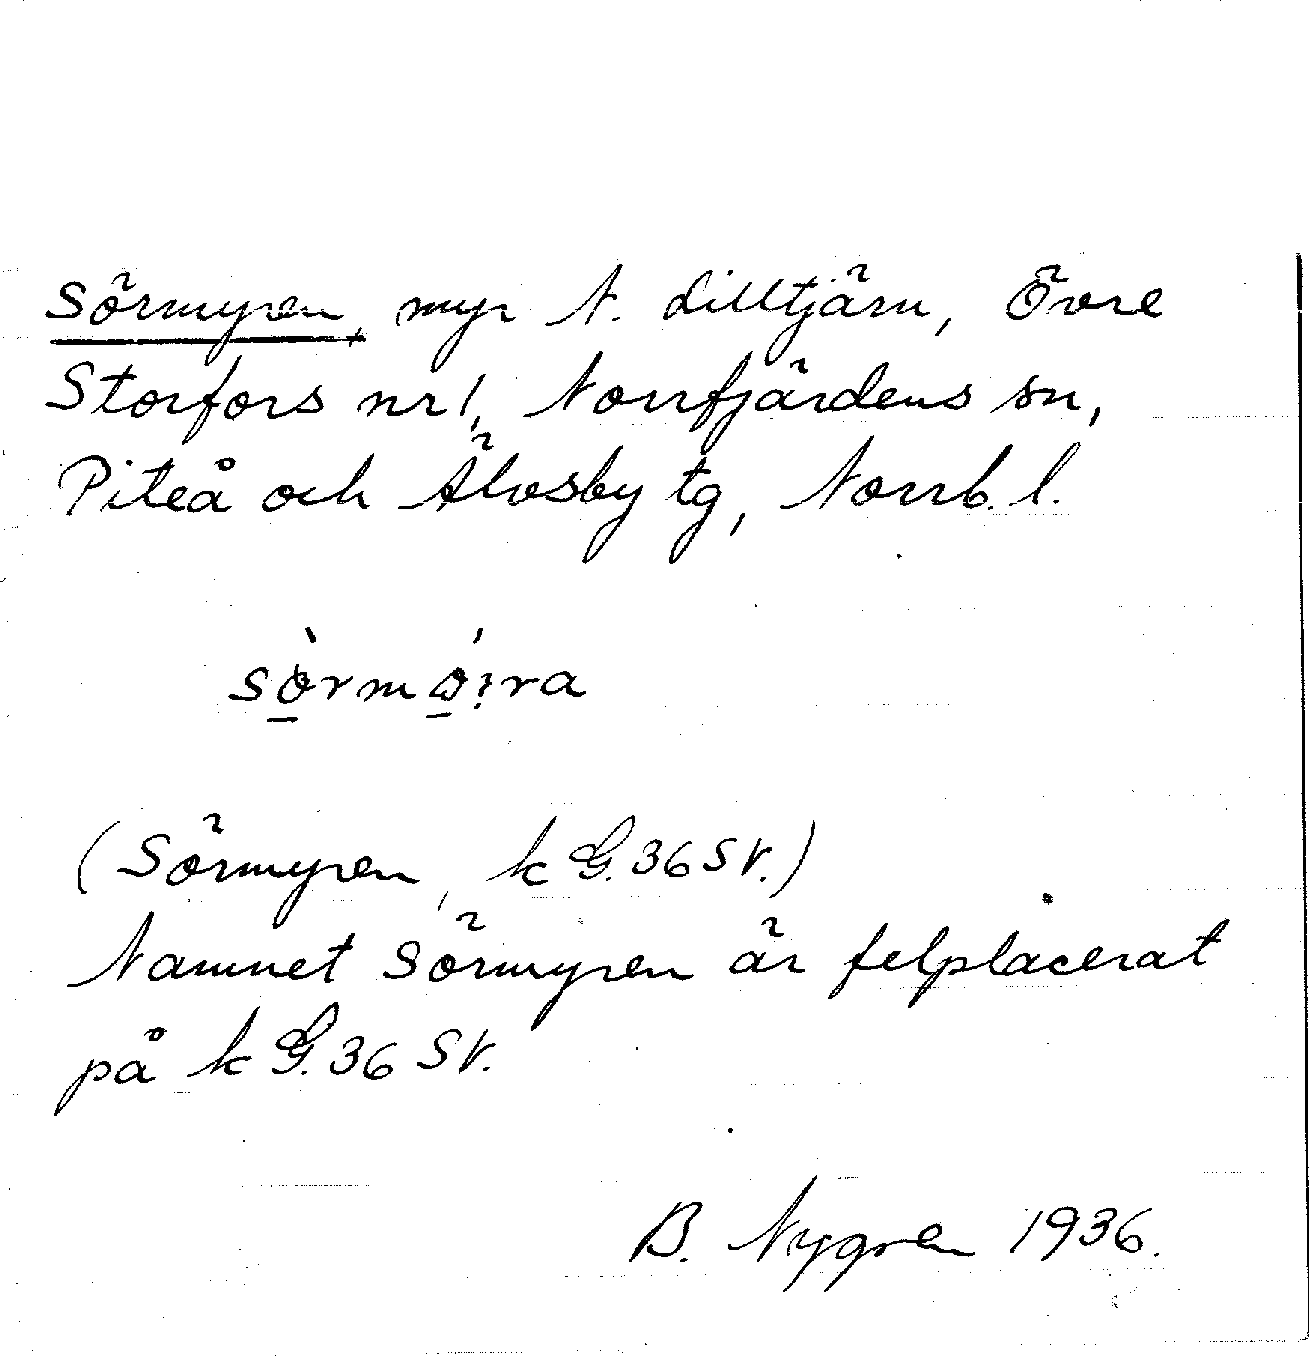 Sörmyren, myr N. Lilltjärn, Övre
Storfors nr 1, Norrfjärdens sn,
Piteå och Älvsby tg, Norrb. l.
sö̱̀rmö̱́ira
(Sörmyren, k G. 36 SV.)
Namnet Sörmyren är felplacerat
på k G. 36 SV.
B. Nygren 1936.